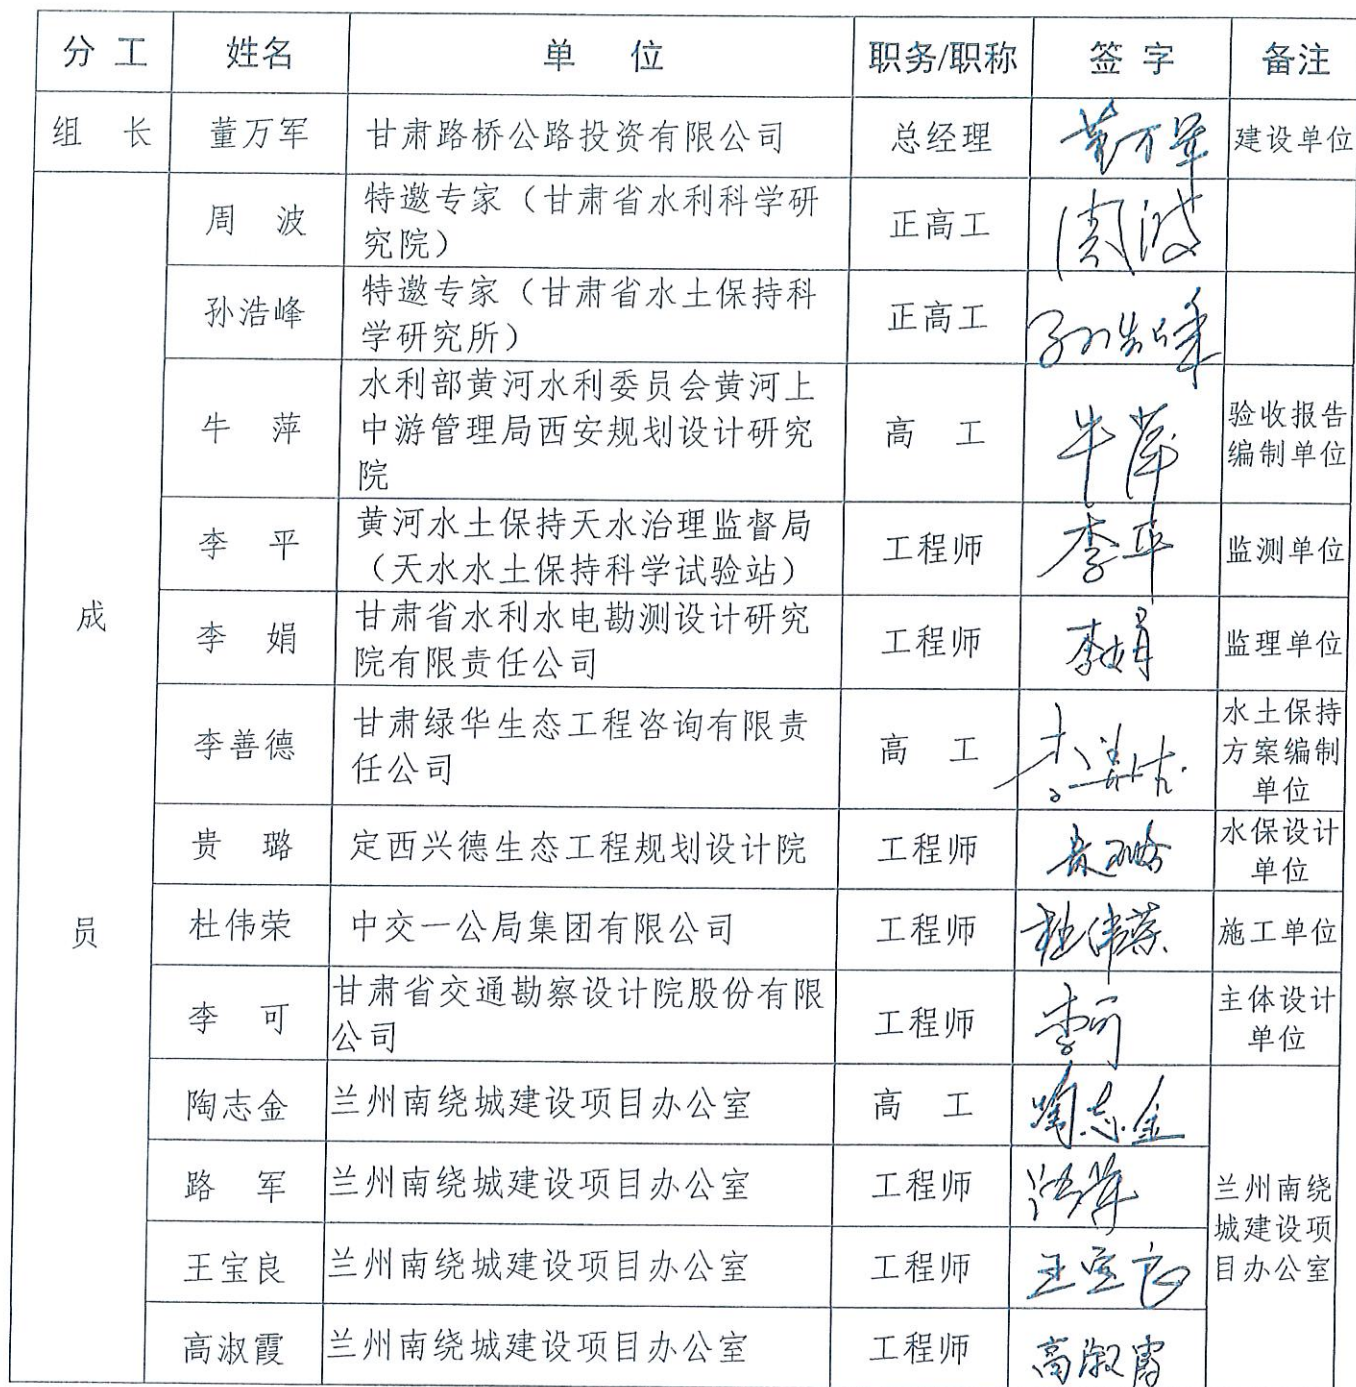 分 工 姓名 单 位 职务/职称 签 字 备注
组 长 董万军 甘肃路桥公路投资有限公司 总经理 董万军 建设单位
成
员
周 波 特邀专家（甘肃省水利科学研
究院） 正高工 周波
孙浩峰 特邀专家（甘肃省水土保持科
学研究所） 正高工 孙浩峰
牛 萍 水利部黄河水利委员会黄河上
中游管理局西安规划设计研究
院 高 工 牛萍 验收报告
编制单位
李 平 黄河水土保持天水治理监督局
（天水水土保持科学试验站） 工程师 李平 监测单位
李 娟 甘肃省水利水电勘测设计研究
院有限责任公司 工程师 李娟 监理单位
李善德 甘肃绿华生态工程咨询有限责
任公司 高 工 李善德 水土保持
方案编制
单位
贵 璐 定西兴德生态工程规划设计院 工程师 贵璐 水保设计
单位
杜伟荣 中交一公局集团有限公司 工程师 杜伟荣 施工单位
李 可 甘肃省交通勘察设计院股份有限
公司 工程师 李可 主体设计
单位
陶志金 兰州南绕城建设项目办公室 高 工 陶志金
路 军 兰州南绕城建设项目办公室 工程师 路军
王宝良 兰州南绕城建设项目办公室 工程师 王宝良
高淑霞 兰州南绕城建设项目办公室 工程师 高淑霞
兰州南绕
城建设项
目办公室